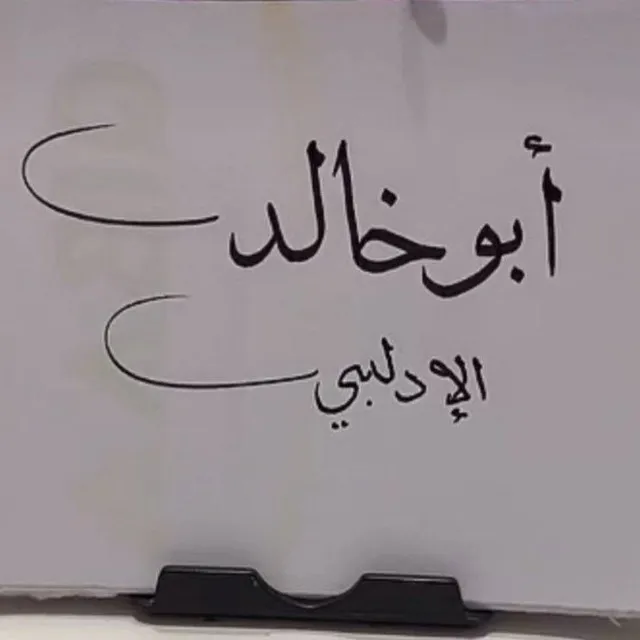 أبو خالد
الإدلبي